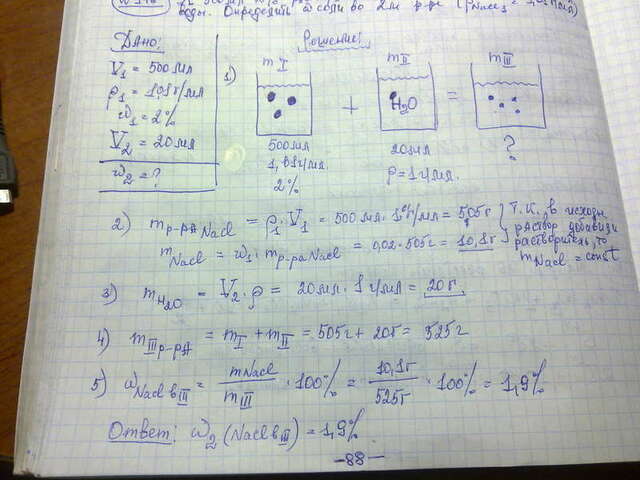 воды. Определить ω соли во 2м р-ре
Дано:
Решение:
V₁ = 500 мл
ρ₁ = 1,01 г/мл
ω₁ = 2%
V₂ = 20 мл
ω₂ = ?
1)
m I
m II
m III
H₂O
+
=
500 мл
20 мл
?
1,01 г/мл
ρ = 1 г/мл.
2%
2) m р-ра NaCl = ρ₁ · V₁ = 500 мл · 1,01 г/мл = 505 г
m NaCl = ω₁ · m р-ра NaCl = 0,02 · 505 г = 10,1 г
т.к. в исходн.
раствор добавили
растворитель, то
m NaCl = const
3) m H₂O = V₂ · ρ = 20 мл · 1 г/мл = 20 г.
4) m III р-ра = m I + m II = 505 г + 20 г = 525 г
5) ω NaCl в III = mNaCl / m III · 100% = 10,1 г / 525 г · 100% = 1,9%
Ответ: ω₂ (NaCl в III) = 1,9%
–88–